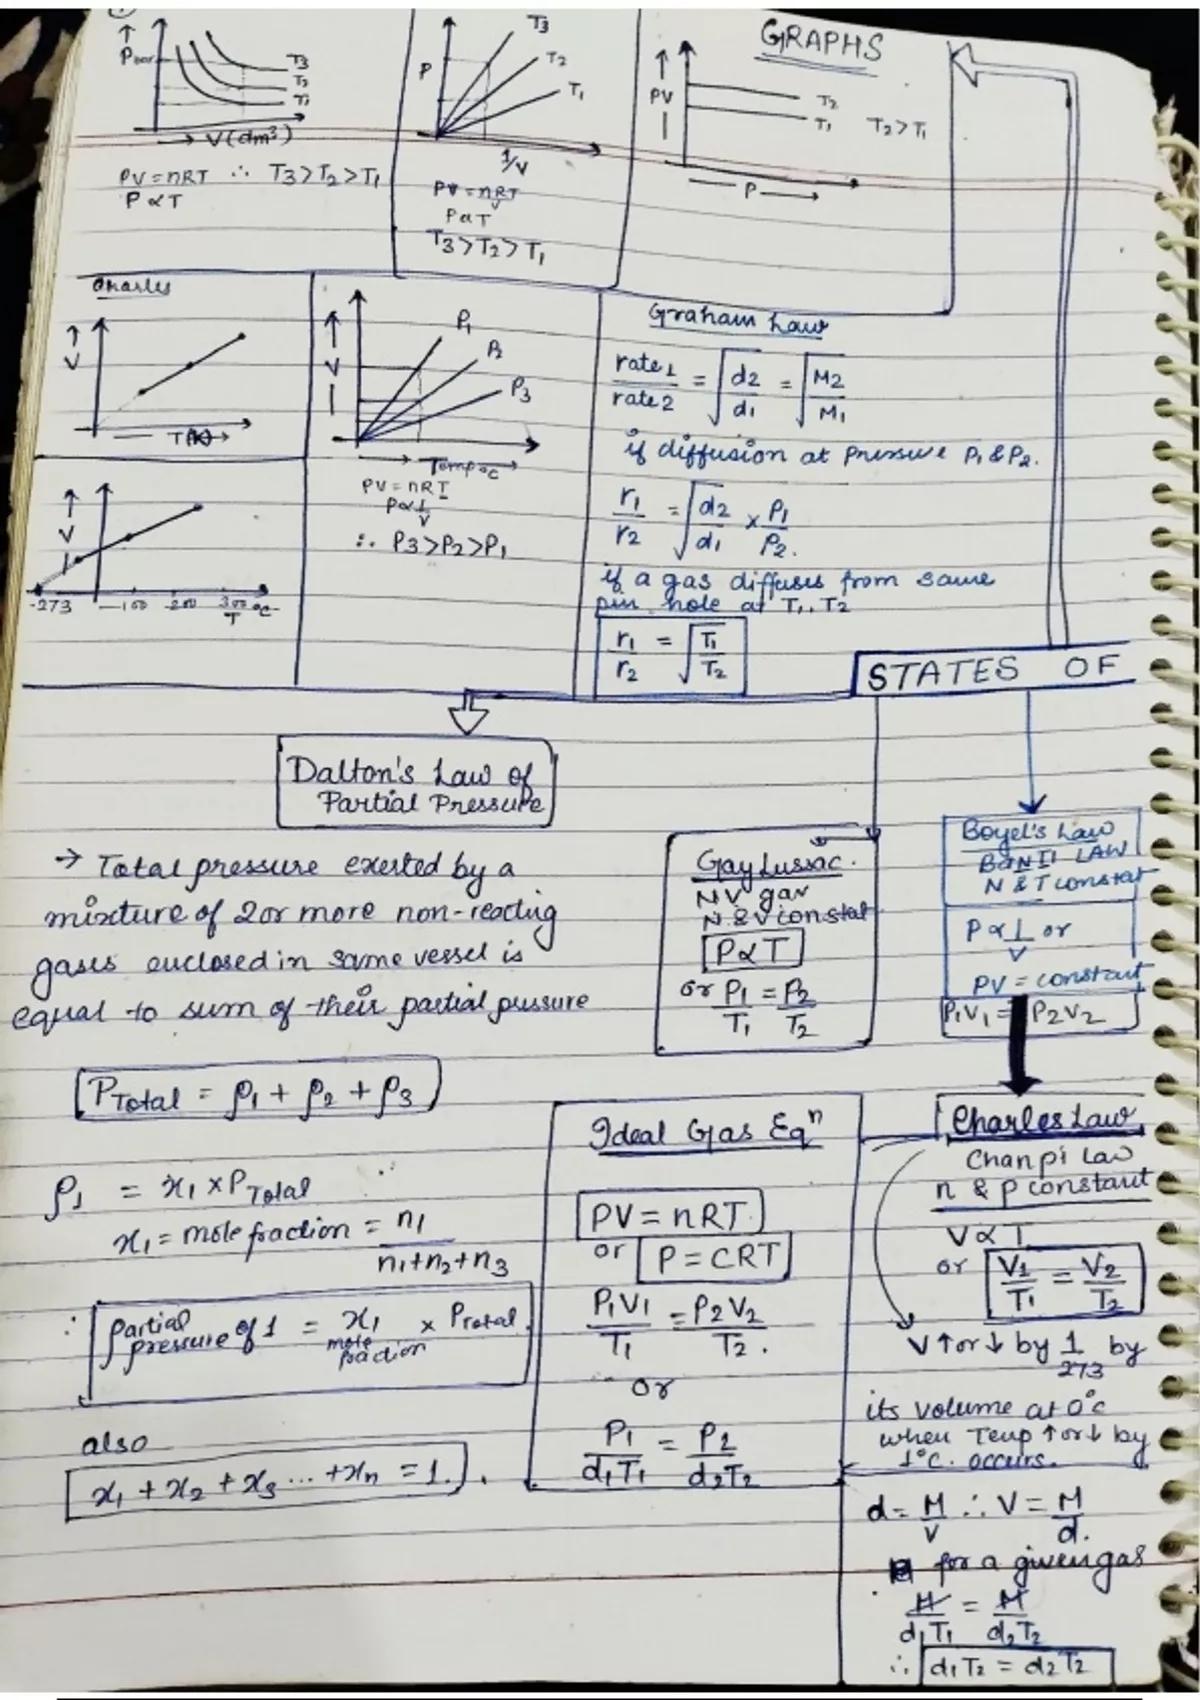 GRAPHS
↑ Pbar
T3
T2
T1
→ V(dm³)
PV = nRT ∴ T3 > T2 > T1
P ∝ T
P
T3
T2
T1
1/V
PV = nRT
V
P ∝ T
T3 > T2 > T1
↑ PV
T2
T1 T2 > T1
P →
Charles
↑ V
T(K) →
↑ V
-273 100 200 300 °C
T
↑ V
P1
P2
P3
→ Temp °C
PV = nRT
P ∝ 1/V
∴ P3 > P2 > P1
Graham Law
rate1/rate2 = √(d2/d1) = √(M2/M1)
if diffusion at pressure P1 & P2.
r1/r2 = √(d2/d1) × P1/P2.
if a gas diffuses from same
pin hole at T1, T2
r1/r2 = √(T1/T2)
STATES OF
Dalton's Law of
Partial Pressure
→ Total pressure exerted by a
mixture of 2 or more non-reacting
gases enclosed in same vessel is
equal to sum of their partial pressure
PTotal = p1 + p2 + p3
p1 = x1 × PTotal
x1 = mole fraction = n1/(n1+n2+n3)
∴ partial pressure of 1 = x1 × PTotal
mole fraction
also
x1 + x2 + x3 ... + xn = 1.
Gay Lussac.
NV gay
N & V constat
P ∝ T
or P1/T1 = P2/T2
Boyel's Law
BaNTi LAW
N & T constat
P ∝ 1/V or
PV = constant
P1V1 = P2V2
Ideal Gas Eqn
PV = nRT
or P = CRT
P1V1/T1 = P2V2/T2.
or
P1/d1T1 = P2/d2T2
Charles Law
Chanpi Law
n & p constant
V ∝ T
or V1/T1 = V2/T2
V ↑ or ↓ by 1/273 by
its volume at 0°C
when Temp ↑ or ↓ by
1°C. occurs.
d = M/V ∴ V = M/d.
for a given gas
M/d1T1 = M/d2T2
∴ d1T2 = d2T2